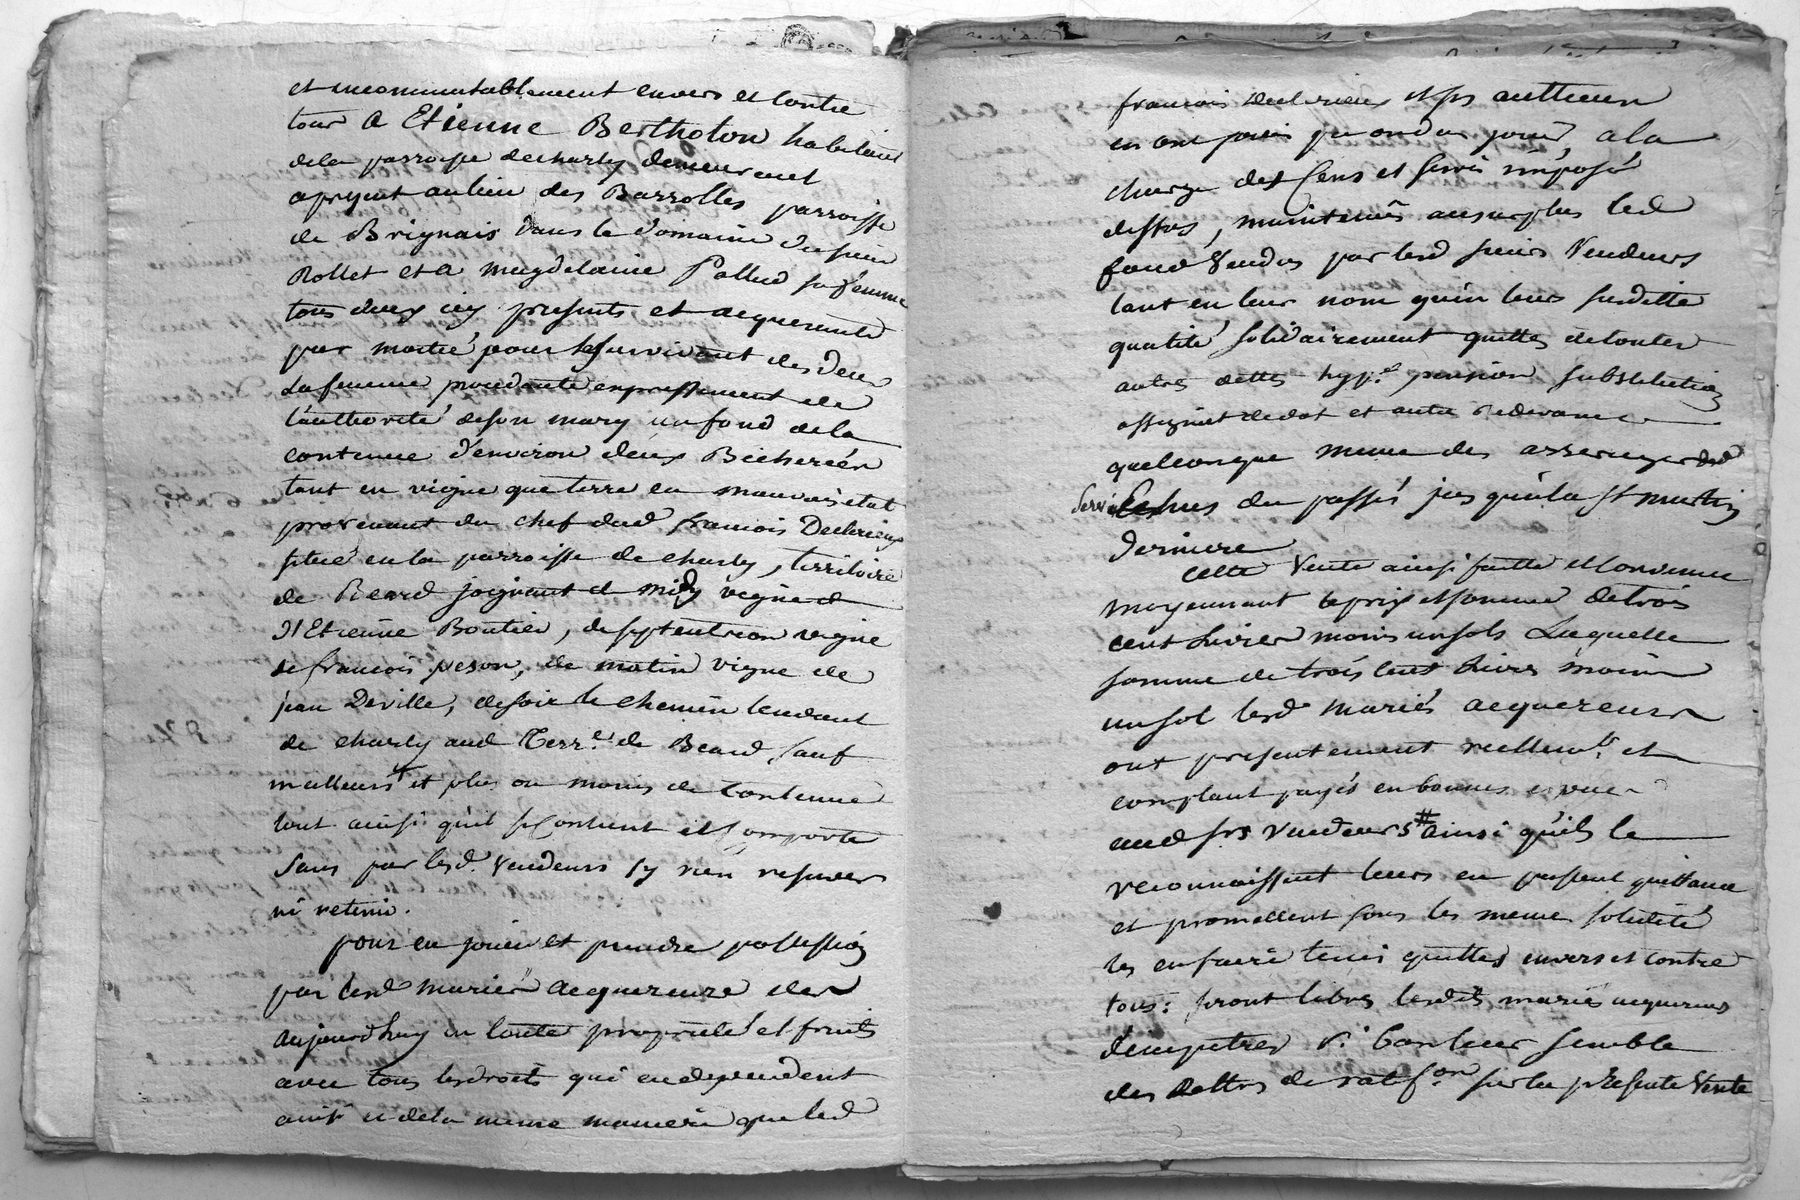 et incommutablement envers et contre
tous a Etienne Bertholon habitant
dela parroisse decharly demeurant
apresent aulieu des Barrolles parroisse
de Brignais dans le domaine du sieur
Rollet et a magdelaine Pallud sa femme
tous deux icy presents et acquerants
par moitié pour le survivant des deux
La femme procedante expressement de
l'authorité deson mary un fond dela
contenue d'environ deux Bicherées
tant en vigne que terre en mauvais etat
provenant du chef dud françois Declerieux
situé en la parroisse de charly, territoire
de Beard joignant de midy vigne d
d'Etienne Boutier, deseptentrion vigne
de francois peson, de matin vigne de
jean Deville, desoir le chemin tendant
de charly aud Terr.e de Beard, sauf
meilleurs et plus ou moins de Contenue
tout ainsi qu'il se Contient et Comporte
sans par lesd. vendeurs sy rien reserver
ni retenir.
pour en jouir et prendre possession
par lesd mariés acquereurs des
aujourdhuy en toute propriété et fruits
avec tous lesdroits qui endependent
ainsi et dela meme maniere que led
francois declerieux et ses autheurs
en ont joui ou du jouir, a la
charge des Cens et servis imposés
dessus, maintenus ausurplus led
fond vendus par lesd sieurs Vendeurs
tant en leur nom qu'en leurs susditte
qualité solidairement quittes detoutes
autres dettes hyp.e, pension substitution
assignat dedot et autre redevance
quelconque meme des arrerages de
servis Echus du passés jusqu'a la st martin
derniere
cette Vente ainsi faitte et convenue
moyennant le prix et somme de trois
cent Livres moins un sols Laquelle
somme de trois cent Livres moins
un sol lesd mariés acquereurs
ont presentement reellem.t et
comptant payés en bonnes especes
aud srs vendeurs # ainsi qu'ils le
reconnaissent leurs en passent quittance
et promettent sous les meme solidité
les en faire tenir quittes envers et contre
tous: seront libres lesdits mariés acquereurs
d'empetrer si Bon leur semble
des Lettres de ratif.on sur la presente vente